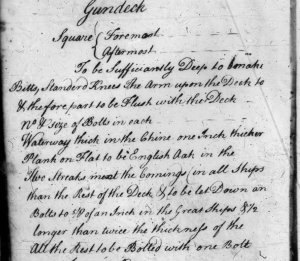 Gundeck
Square { Foremost
Aftermost
To be Sufficiantly Deep to
Bitts, Standerd Knees The Arm upon the Deck to
& the fore part to be Flush with the Deck
No. & Size of Bolts in each
Waterway thick in the Chine one Inch thicker
Plank on Flat to be English Oak in the
Two Streaks next the Comings, in all Ships
than the Rest of the Deck & to be let Down an
Bolts to of an Inch in the Great Ships & 1/2
longer than twice the thickness of the
All the Rest to be Bolted with one Bolt